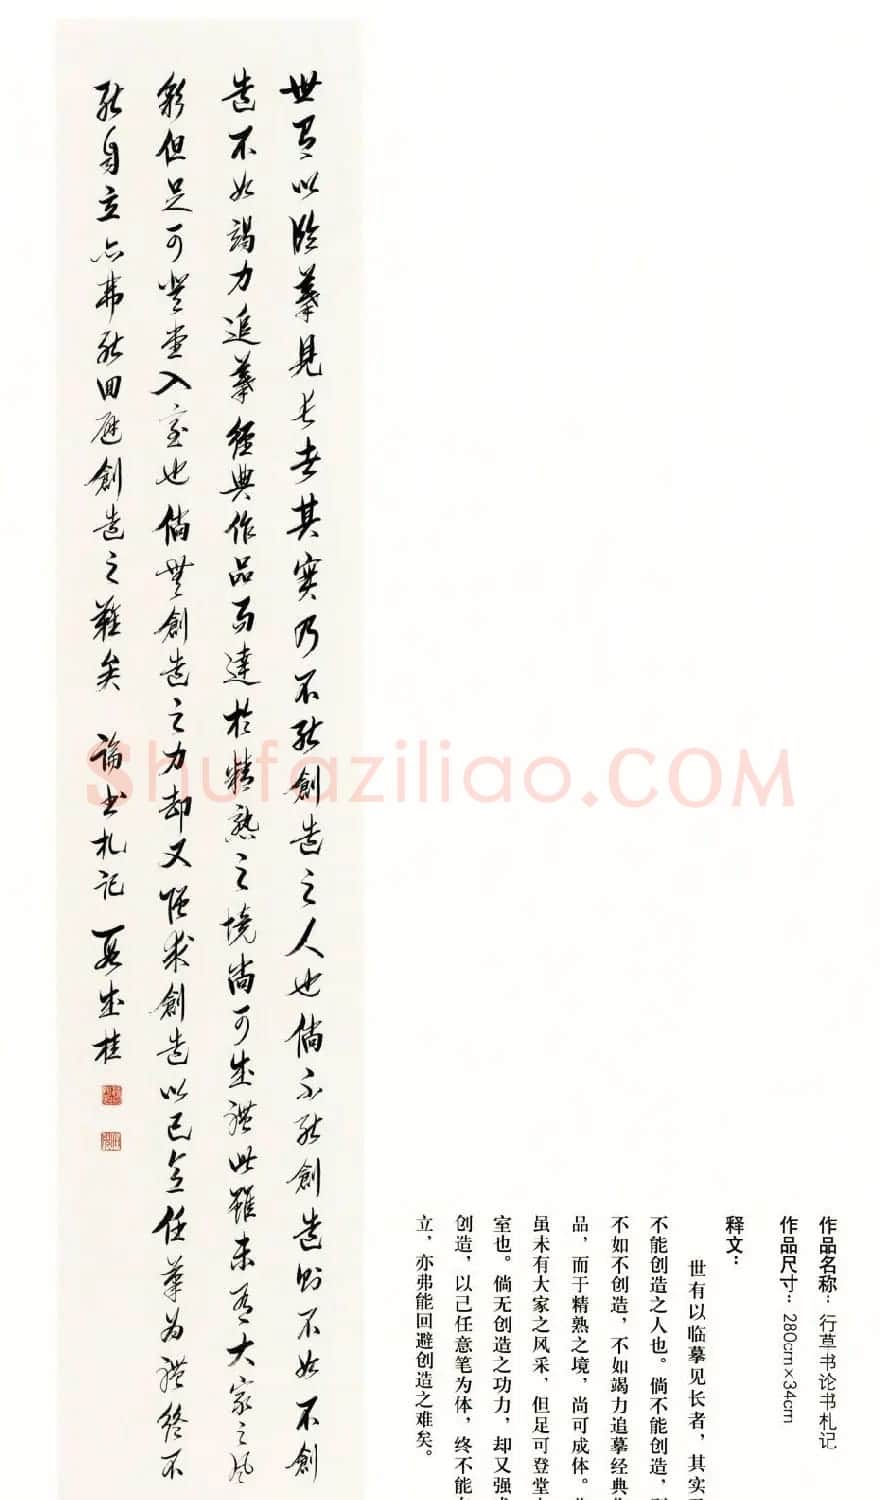 世有以臨摹見長者其實乃不能創造之人也倘不能創造則不如不創
造不如竭力追摹經典作品而達於精熟之境尚可成體此雖未有大家之風
彩但足可登堂入室也倘無創造之力却又強求創造以己意任筆為體終不
能自立亦弗能回避創造之難矣 論書札記 成桂
作品名称：行草书论书札记
作品尺寸：280cm×34cm
释文：
世有以临摹见长者，其实
不能创造之人也。倘不能创造，
不如不创造，不如竭力追摹经典
品，而于精熟之境，尚可成体。
虽未有大家之风采，但足可登堂
室也。倘无创造之功力，却又强
创造，以己任意笔为体，终不能
立，亦弗能回避创造之难矣。
Shufaziliao.COM